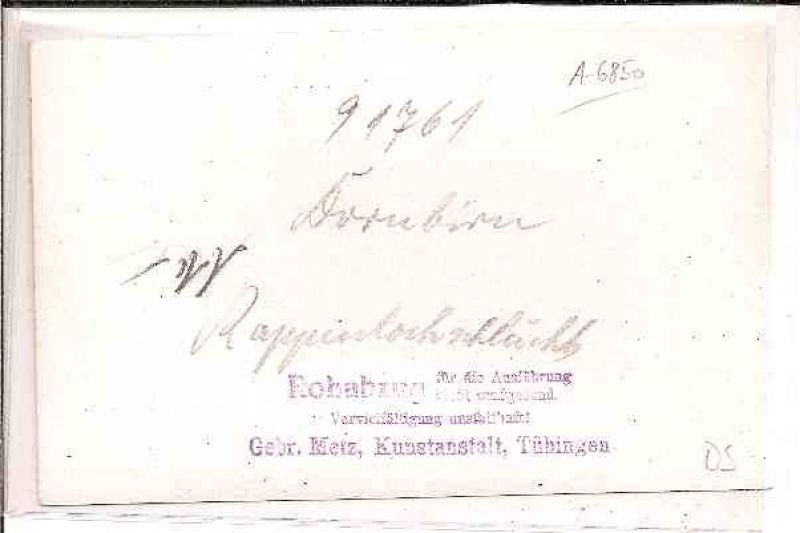 A-6850
91761
Dornbirn
Rappenlochschlucht
Rohabzug für die Ausführung
nicht maßgebend.
Vervielfältigung unstatthaft!
Gebr. Metz, Kunstanstalt, Tübingen
DS